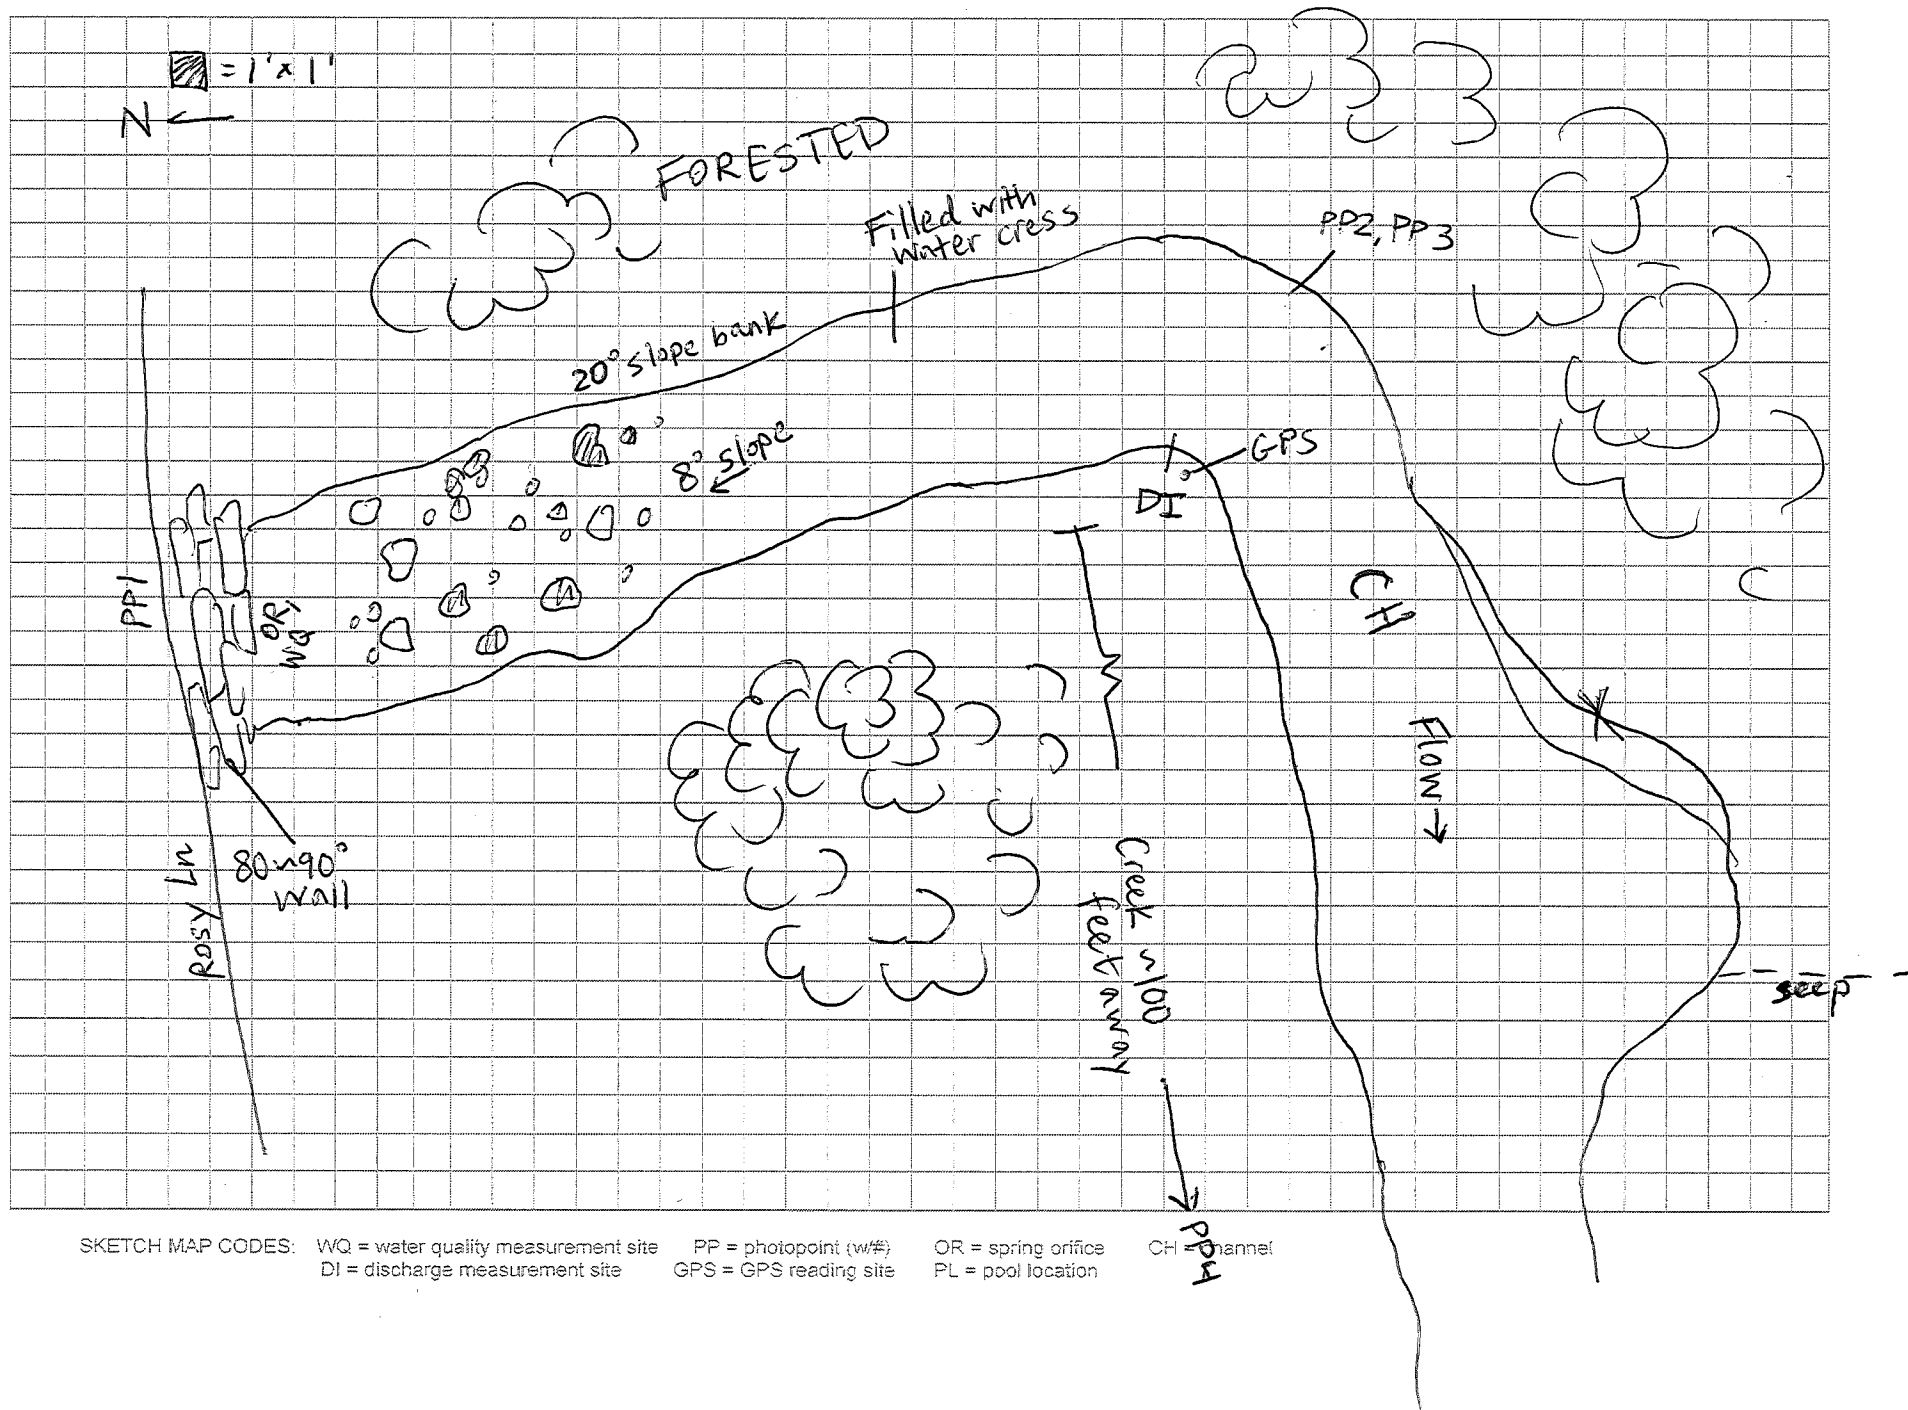 = 1' x 1'
N
FORESTED
Filled with
water cress
PP2, PP3
20° slope bank
8° slope
GPS
DI
PP1
OR,
WQ
CH
Flow
80~90°
wall
Rosy Ln
Creek ~100
feet away
seep
PP4
SKETCH MAP CODES: WQ = water quality measurement site PP = photopoint (w/#) OR = spring orifice CH = channel
DI = discharge measurement site GPS = GPS reading site PL = pool location